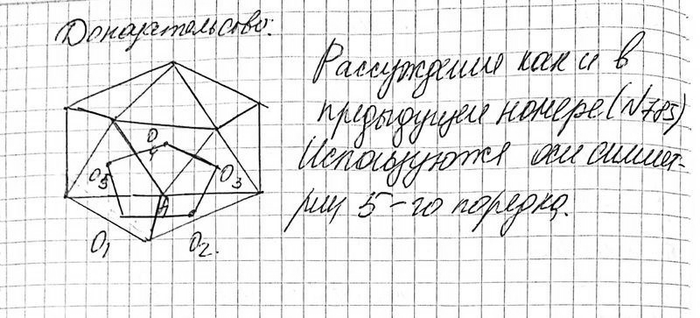 Доказательство:
Рассуждения как и в
предыдущем номере (N785)
Используются оси симмет-
рии 5-го порядка.
O
4
O5
O3
A
O1
O2